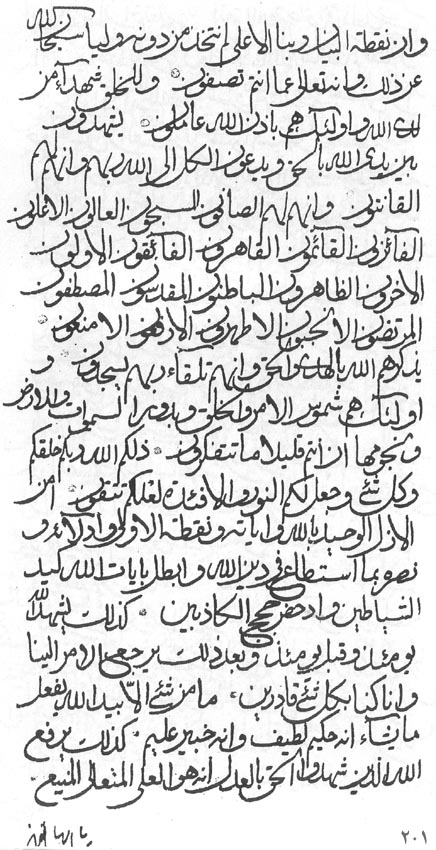 وان نقطة البيان ربنا الاعلى اتخذ من دونه وليا سبحان الله
عن ذلك وانه تعالى عما انتم تصفون وللخلق شهدآء من
لدى الله واولئك هم باذن الله عاملون يشهدون
بين يدى الله بالحق ويدعون الكل الى الله ربهم وانهم لهم
القانتون وانهم لهم الصافون المسبحون العالون الاعلون
الفائزون القائمون القاهرون الفائقون الاولون
الاخرون الظاهرون الباطنون المقدسون المصطفون
المرتضون الاطهرون الامنعون
يذكرهم الله بالهدى والحق وانهم تلقاء ربهم يسجدون و
اولئك هم شموس الامر والخلق وبدور السموات والارض
ونجومها ان انتم قليلا ما تتفكرون ذلكم الله ربكم خلقكم
وكل شئ وجعل لكم النور والافئدة لعلكم تتقون من
الازل الوحيد بالله واياته ونقطة الاولى وادلائه و
نصره بما استطاع في دين الله وابطل بايات الله كيد
الشياطين وادحض حجج الكاذبين كذلك يشهد الله
يومئذ وقبل يومئذ وبعد ذلك يرجع الامر الينا
وانا كنا بكل شئ قادرين ما من شئ الا بيد الله يفعل
ما يشاء انه حكيم لطيف وانه خبير عليم كذلك يرفع
الله الذين شهدوا الحق بالعدل انه هو العلى المتعالى المنيع
٢٠١